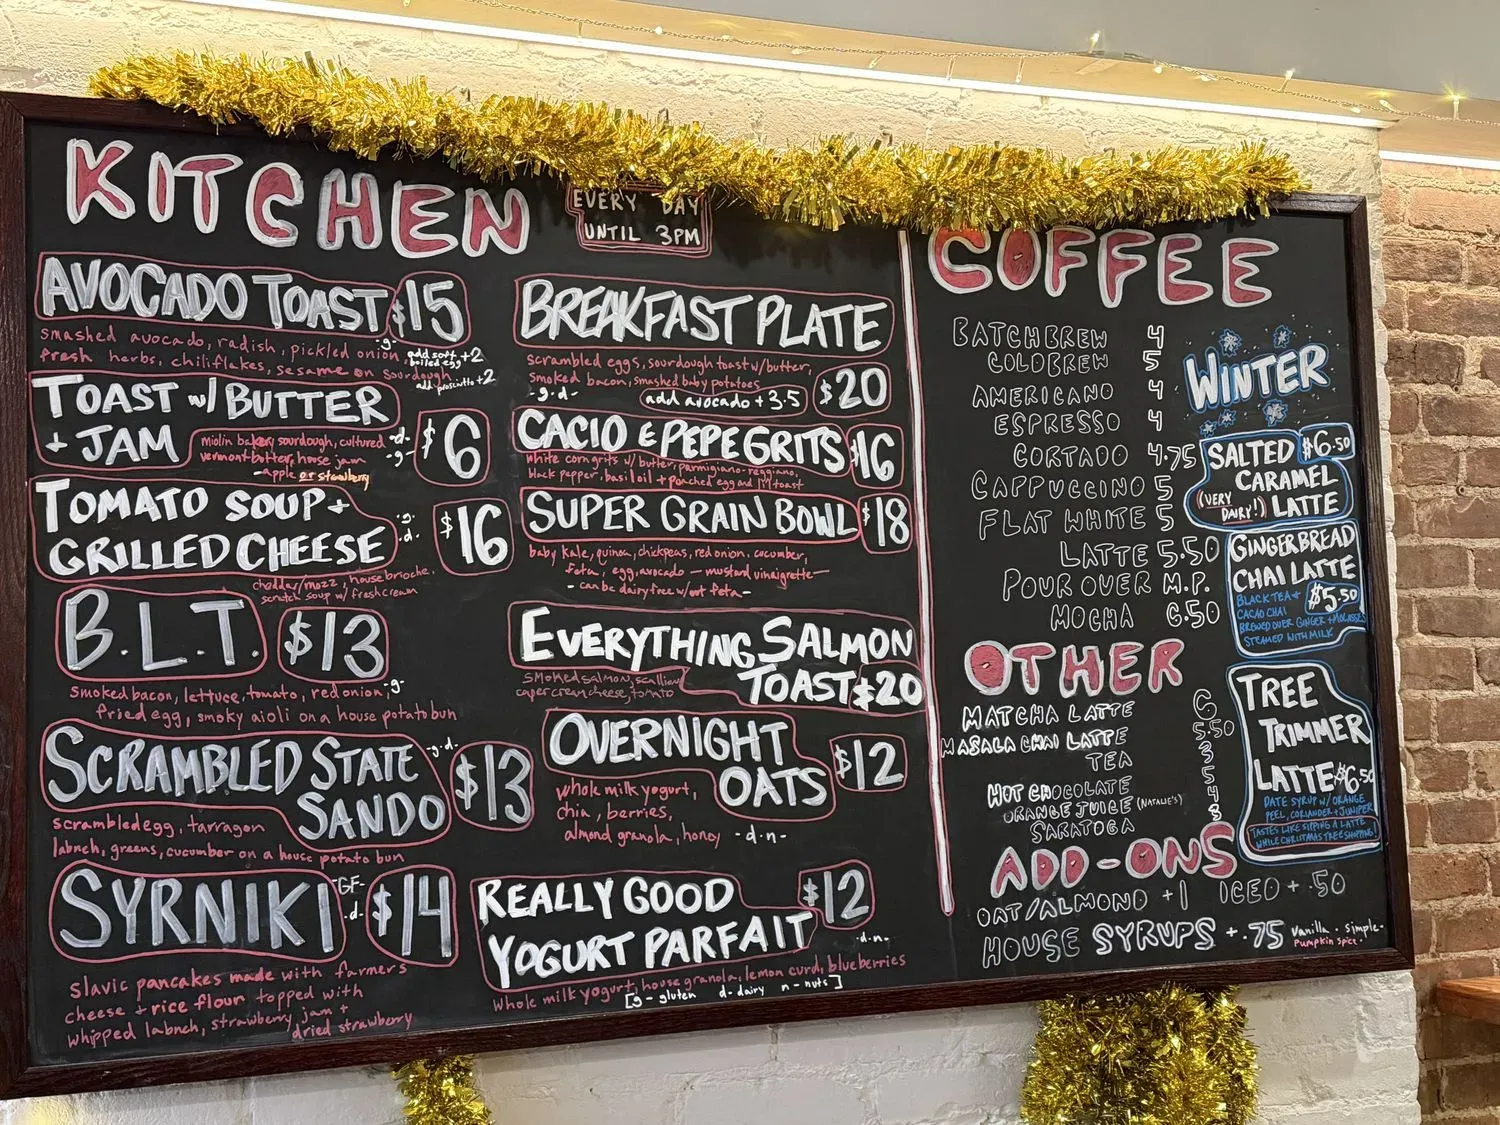 KITCHEN
EVERY DAY
UNTIL 3PM
AVOCADO TOAST $15
smashed avocado, radish, pickled onion, -g-
fresh herbs, chiliflakes, sesame on sourdough
add soft boiled egg +2
add prosciutto +2
TOAST w/ BUTTER
+ JAM $6
miolin bakery sourdough, cultured -d-
vermont butter, house jam -g-
-apple or strawberry
TOMATO SOUP + -g-
GRILLED CHEESE -d- $16
cheddar/mozz, house brioche,
scratch soup w/ fresh cream
B.L.T. $13
smoked bacon, lettuce, tomato, red onion, -g-
fried egg, smoky aioli on a house potato bun
SCRAMBLED STATE -g-d-
SANDO $13
scrambled egg, tarragon
labneh, greens, cucumber on a house potato bun
SYRNIKI -GF- -d- $14
slavic pancakes made with farmers
cheese + rice flour topped with
whipped labneh, strawberry jam +
dried strawberry
BREAKFAST PLATE
scrambled eggs, sourdough toast w/ butter,
smoked bacon, smashed baby potatoes
-g-d- add avocado +3.5 $20
CACIO E PEPE GRITS $16
white corn grits w/ butter, parmigiano-reggiano,
black pepper, basil oil + poached egg and toast
SUPER GRAIN BOWL $18
baby kale, quinoa, chickpeas, red onion, cucumber,
feta, egg, avocado — mustard vinaigrette —
- can be dairy free w/out feta -
EVERYTHING SALMON
TOAST $20
smoked salmon, scallion
caper cream cheese, tomato
OVERNIGHT
OATS $12
whole milk yogurt,
chia, berries,
almond granola, honey -d-n-
REALLY GOOD $12
YOGURT PARFAIT
-d-n-
whole milk yogurt, house granola, lemon curd, blueberries
[g - gluten d - dairy n - nuts]
COFFEE
BATCH BREW 4
COLD BREW 5
AMERICANO 4
ESPRESSO 4
CORTADO 4.75
CAPPUCCINO 5
FLAT WHITE 5
LATTE 5.50
POUR OVER M.P.
MOCHA 6.50
OTHER
MATCHA LATTE 6
MASALA CHAI LATTE 5.50
TEA 3
HOT CHOCOLATE 5
ORANGE JUICE (NATALIE'S) 4
SARATOGA 3
ADD-ONS
OAT/ALMOND +1 ICED + .50
HOUSE SYRUPS + .75 vanilla · simple ·
Pumpkin Spice ·
WINTER
SALTED $6.50
CARAMEL
(VERY DAIRY!) LATTE
GINGERBREAD
CHAI LATTE
$5.50
BLACK TEA +
CACAO CHAI
BREWED OVER GINGER + MOLASSES
STEAMED WITH MILK
TREE
TRIMMER
LATTE $6.50
DATE SYRUP W/ ORANGE
PEEL, CORIANDER + JUNIPER
TASTES LIKE SIPPING A LATTE
WHILE CHRISTMAS TREE SHOPPING!